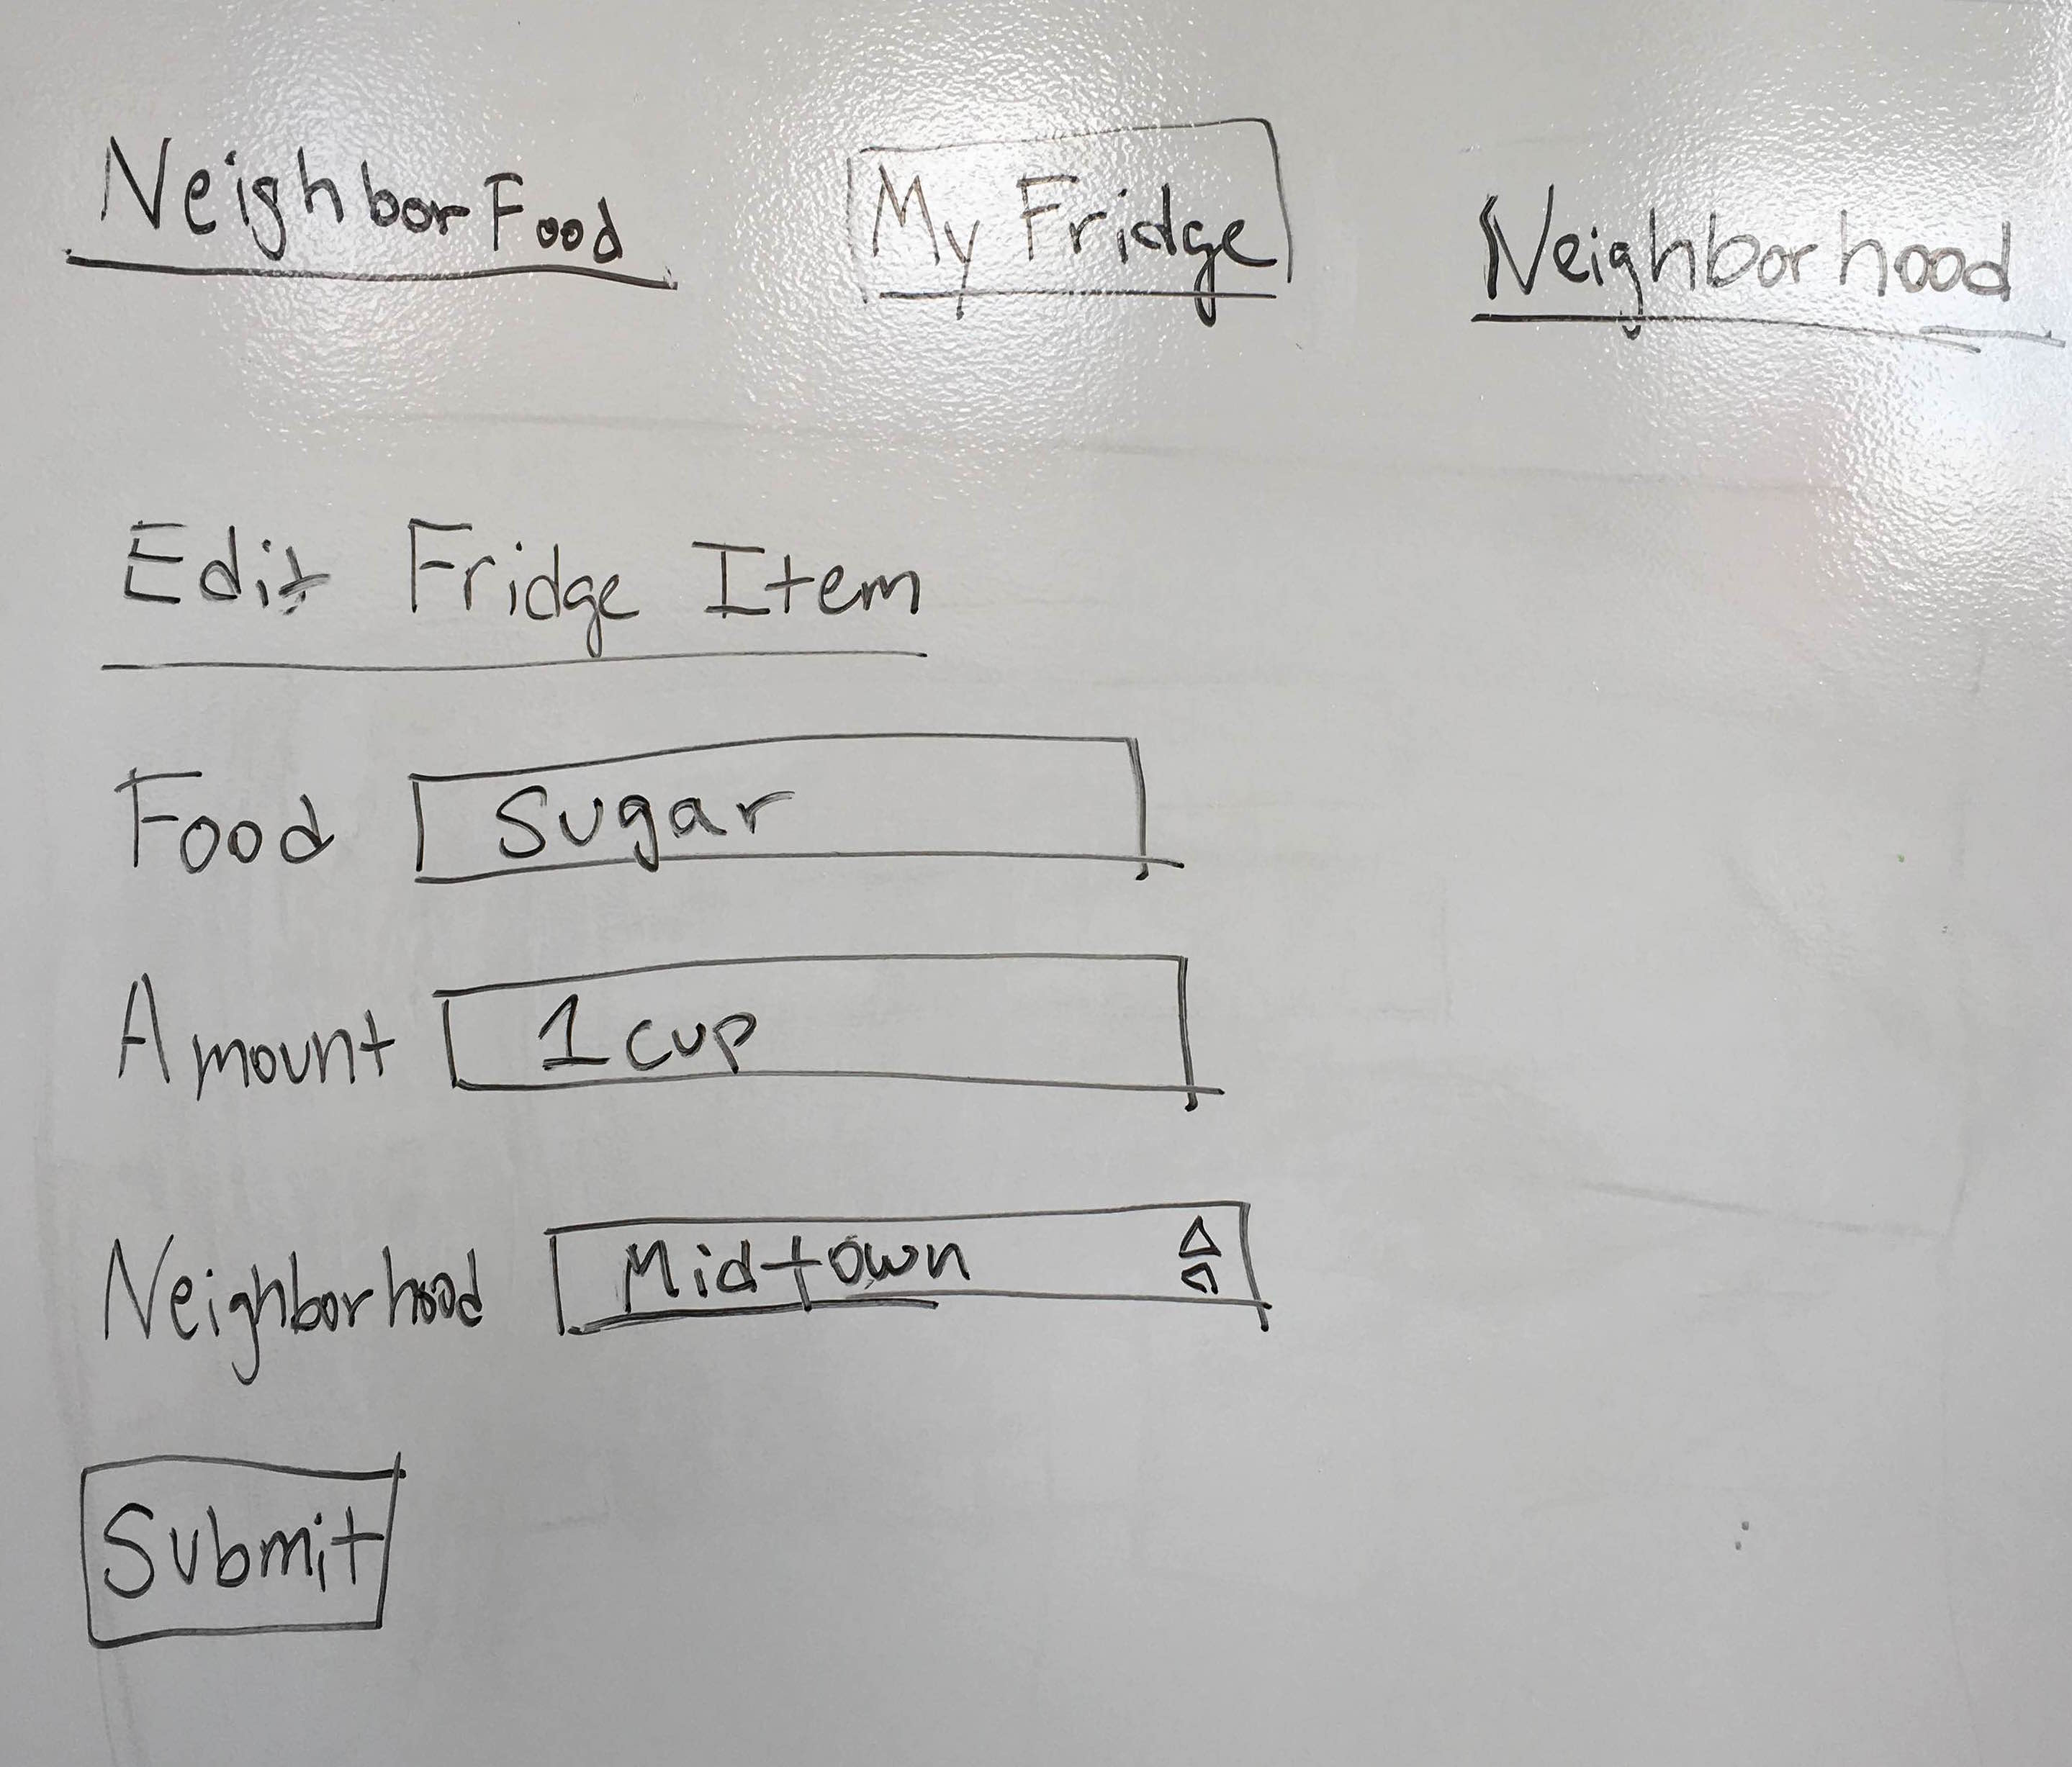 NeighborFood My Fridge Neighborhood
Edit Fridge Item
Food Sugar
Amount 1 cup
Neighborhood Midtown
Submit